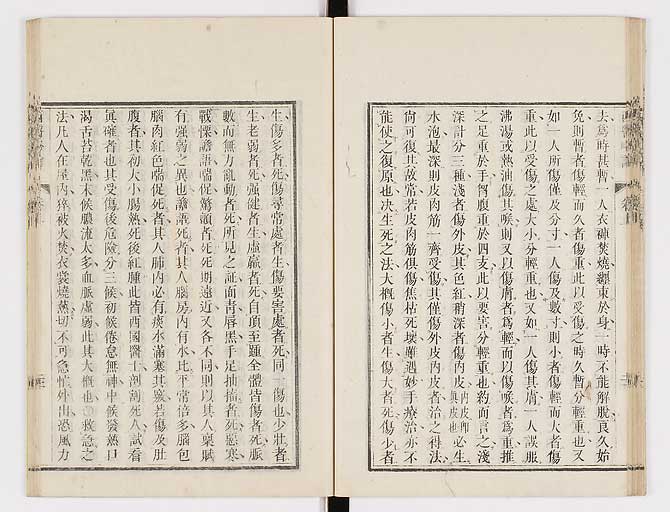 去爲時甚暫一人衣褲焚燒纏束於身一時不能解脫良久始
免則暫者傷輕而久者傷重此以受傷之時久暫分輕重也又
如一人所傷僅及分寸一人傷及數寸則小者傷輕而大者傷
重此以受傷之處大小分輕重也又如一人傷其膚一人誤服
沸湯或熱油傷其喉則又以傷膚者爲輕而以傷喉者爲重推
之足重於手胷腹重於四支此以要害分輕重也約而言之淺
深計分三種淺者傷外皮其色紅稍深者傷內皮內皮卽眞皮也必生
水泡最深則皮肉筋一齊受傷其僅傷外皮內皮者治之得法
尙可復其故常若皮肉筋俱傷焦枯死壞雖遇妙手療治亦不
能使之復原也決生死之法大槪傷小者生傷大者死傷少者
生傷多者死傷尋常處者生傷要害處者死同一傷也少壯者
生老弱者死强健者生虛羸者死自頂至踵全體皆傷者死脈
數而無力亂動者死所見之証面靑唇黑手足抽搐者死惡寒
戰慄譫語喘促驚顫者死死期遠近又各不同則以其人稟賦
有强弱之異也譫語死者其人腦房內有水比平常倍多腦包
腦肉紅色喘促死者其人肺內必有痰水滿塞其竅若傷及肚
腹者其初大小腸熱死後紅腫此皆西國醫士剖割死人試看
眞確者也其受傷後危險分三候初候倦怠無神中候發熱口
渴舌苔乾黑末候膿流太多血脈虛弱此其大槪也救急之
法凡人在屋內猝被火焚衣裳燒蒸切不可急惶外出恐風力